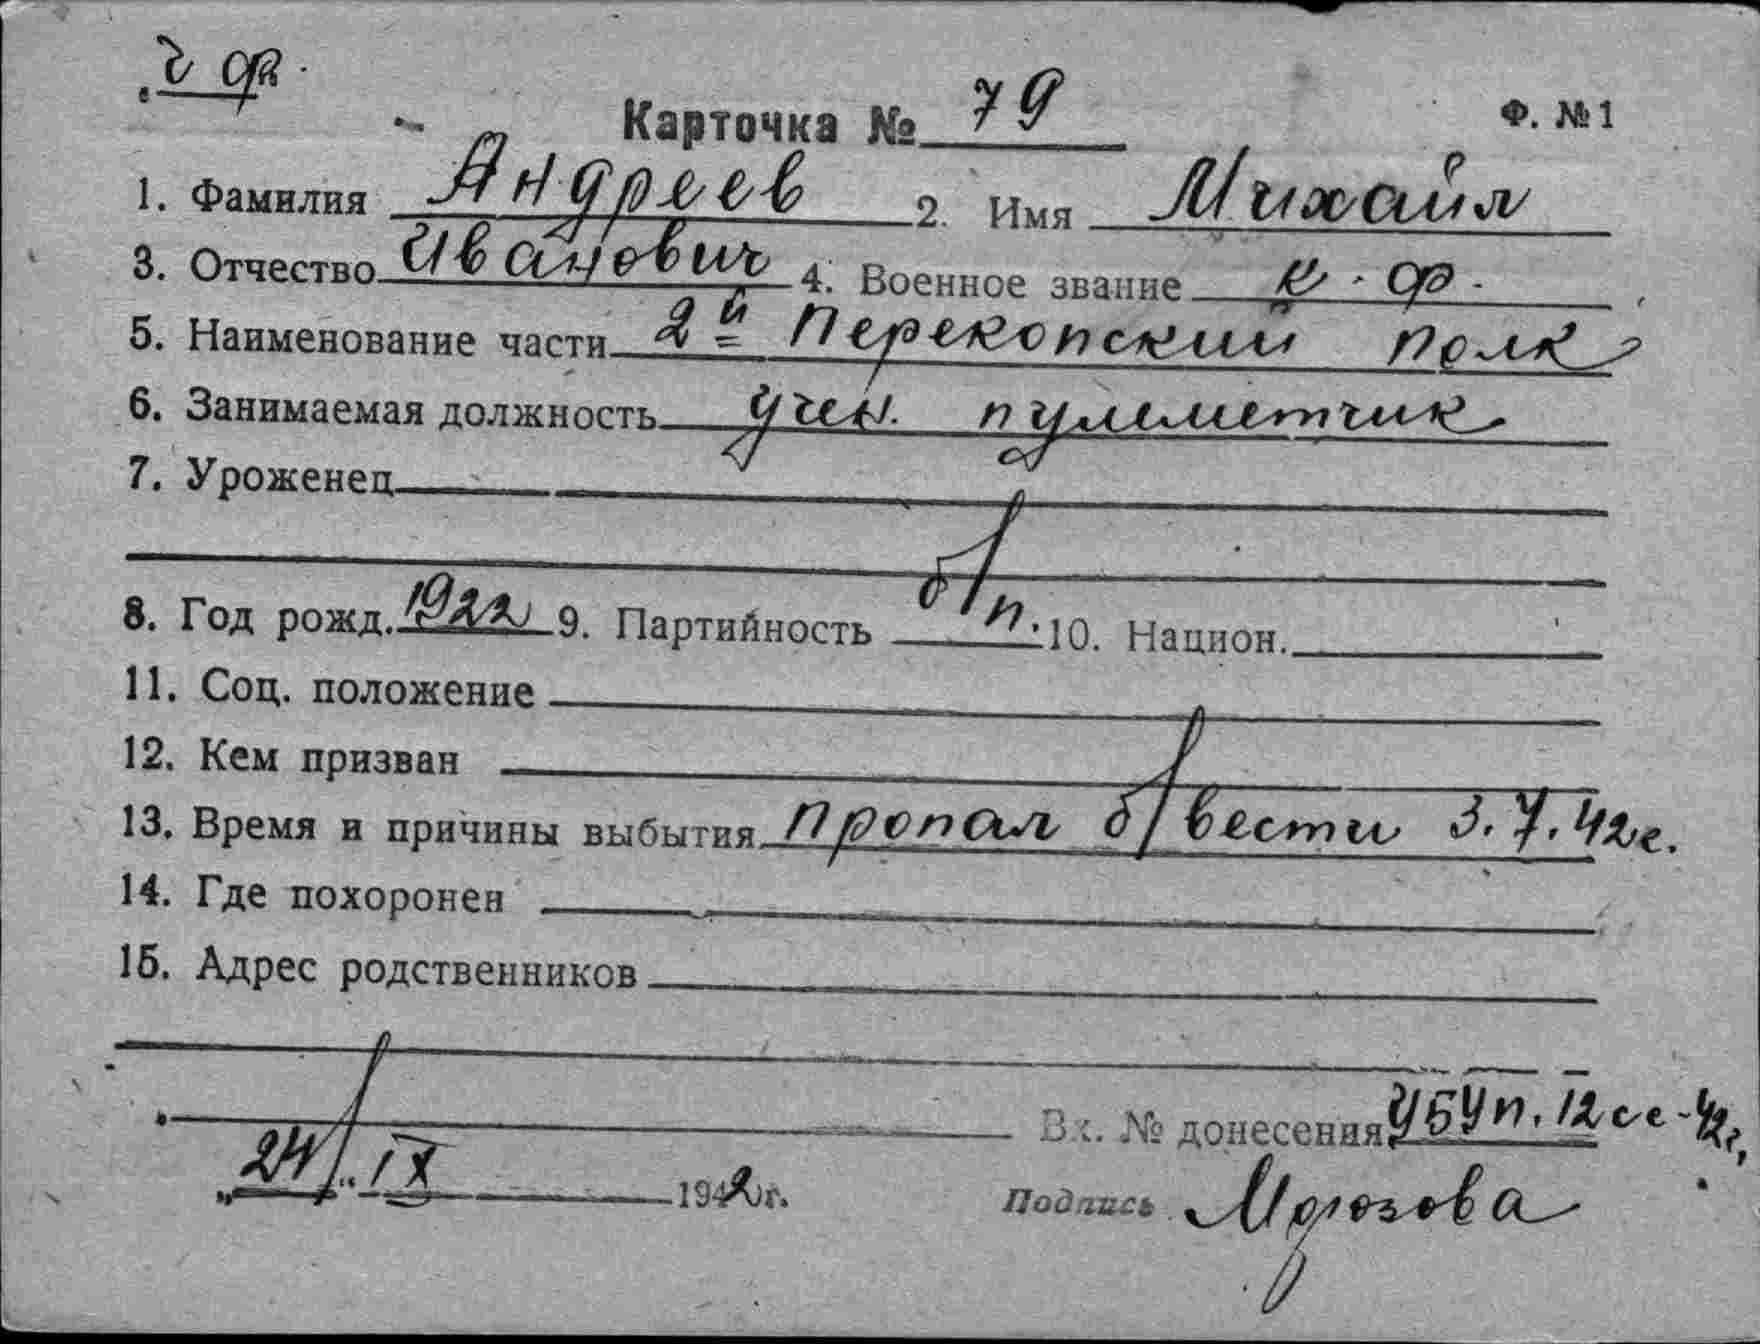 Карточка № 79 Ф. №1
1. Фамилия Андреев 2. Имя Михаил
3. Отчество Иванович 4. Военное звание к.ф.
5. Наименование части 2й Перекопский полк
6. Занимаемая должность учен. пулеметчик
7. Уроженец
8. Год рожд. 1922 9. Партийность б/п. 10. Национ.
11. Соц. положение
12. Кем призван
13. Время и причины выбытия пропал б/вести 3.7.42г.
14. Где похоронен
15. Адрес родственников
Вх. № донесения
"24" IX 1942г. Подпись Морозова